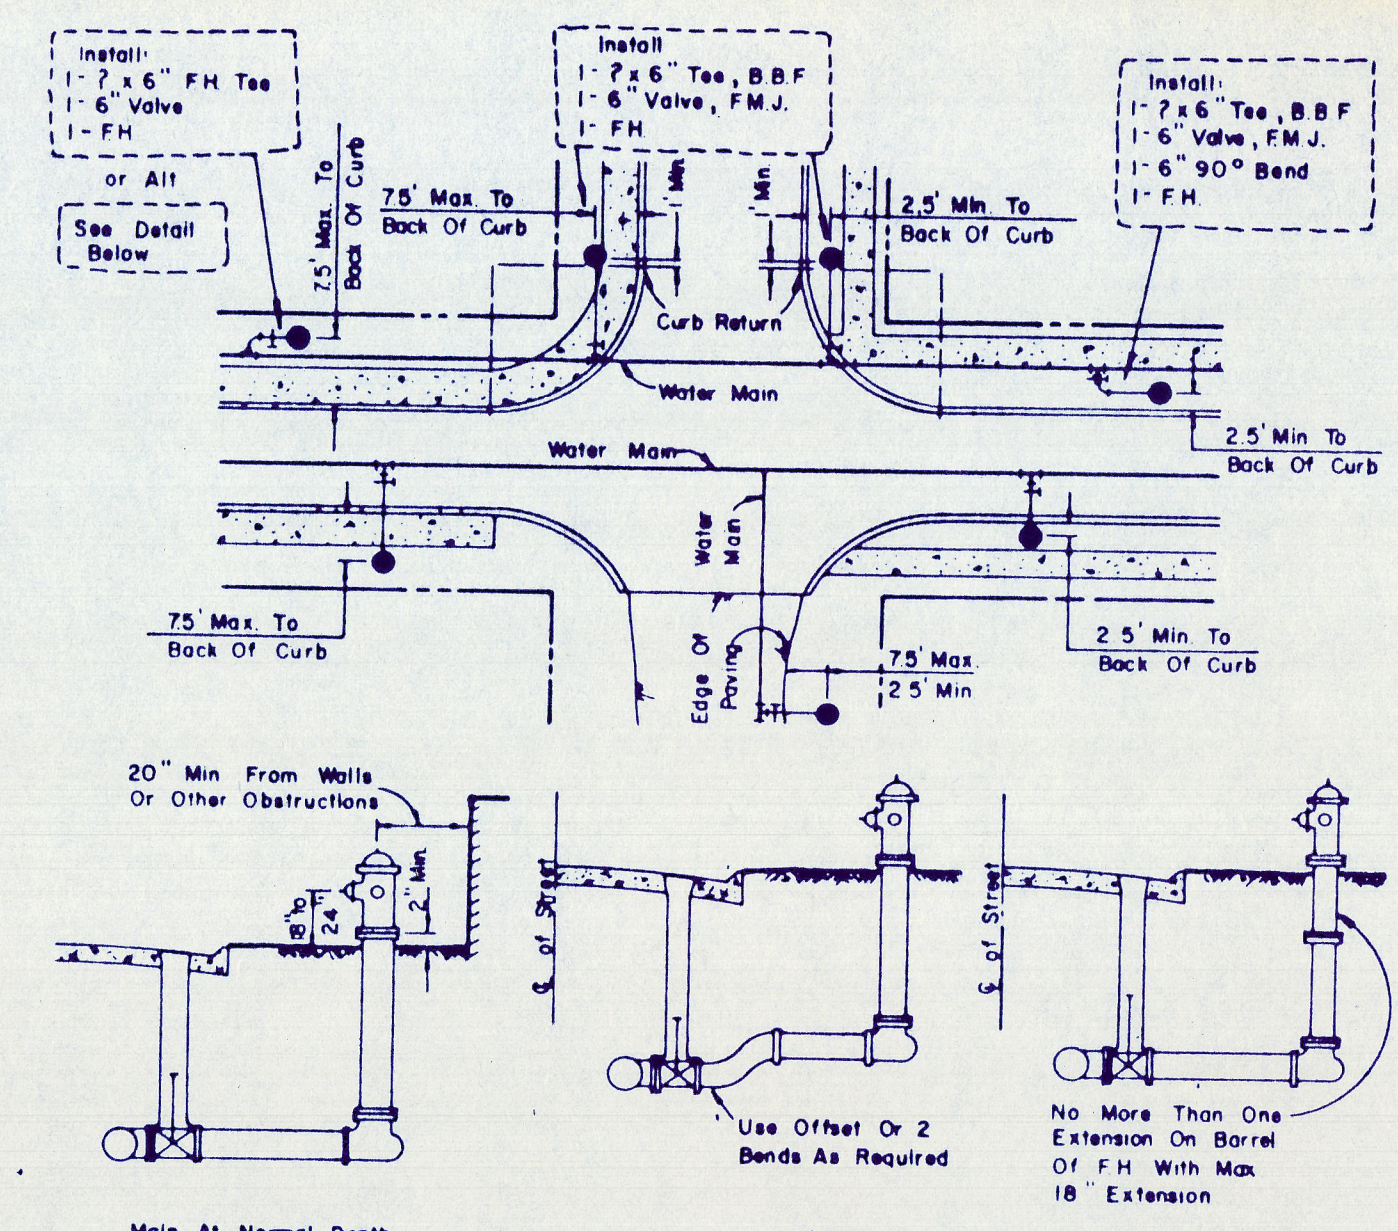 Install:
1- ? x 6" F.H. Tee
1- 6" Valve
1- F.H.
or Alt
See Detail
Below
7.5' Max. To
Back Of Curb
Install
1- ? x 6" Tee, B.B.F
1- 6" Valve, F.M.J.
1- F.H.
Install:
1- ? x 6" Tee, B.B.F
1- 6" Valve, F.M.J.
1- 6" 90° Bend
1- F.H.
7.5' Max. To
Back Of Curb
1' Min.
1' Min.
2.5' Min. To
Back Of Curb
Curb Return
Water Main
Water Main
2.5' Min To
Back Of Curb
Water
Main
7.5' Max. To
Back Of Curb
Edge Of
Paving
7.5' Max.
2.5' Min
2.5' Min. To
Back Of Curb
20" Min From Walls
Or Other Obstructions
18" to
24"
2" Min.
℄ of Street
℄ of Street
Use Offset Or 2
Bends As Required
No More Than One
Extension On Barrel
Of F.H. With Max
18" Extension
Main At Normal Depth